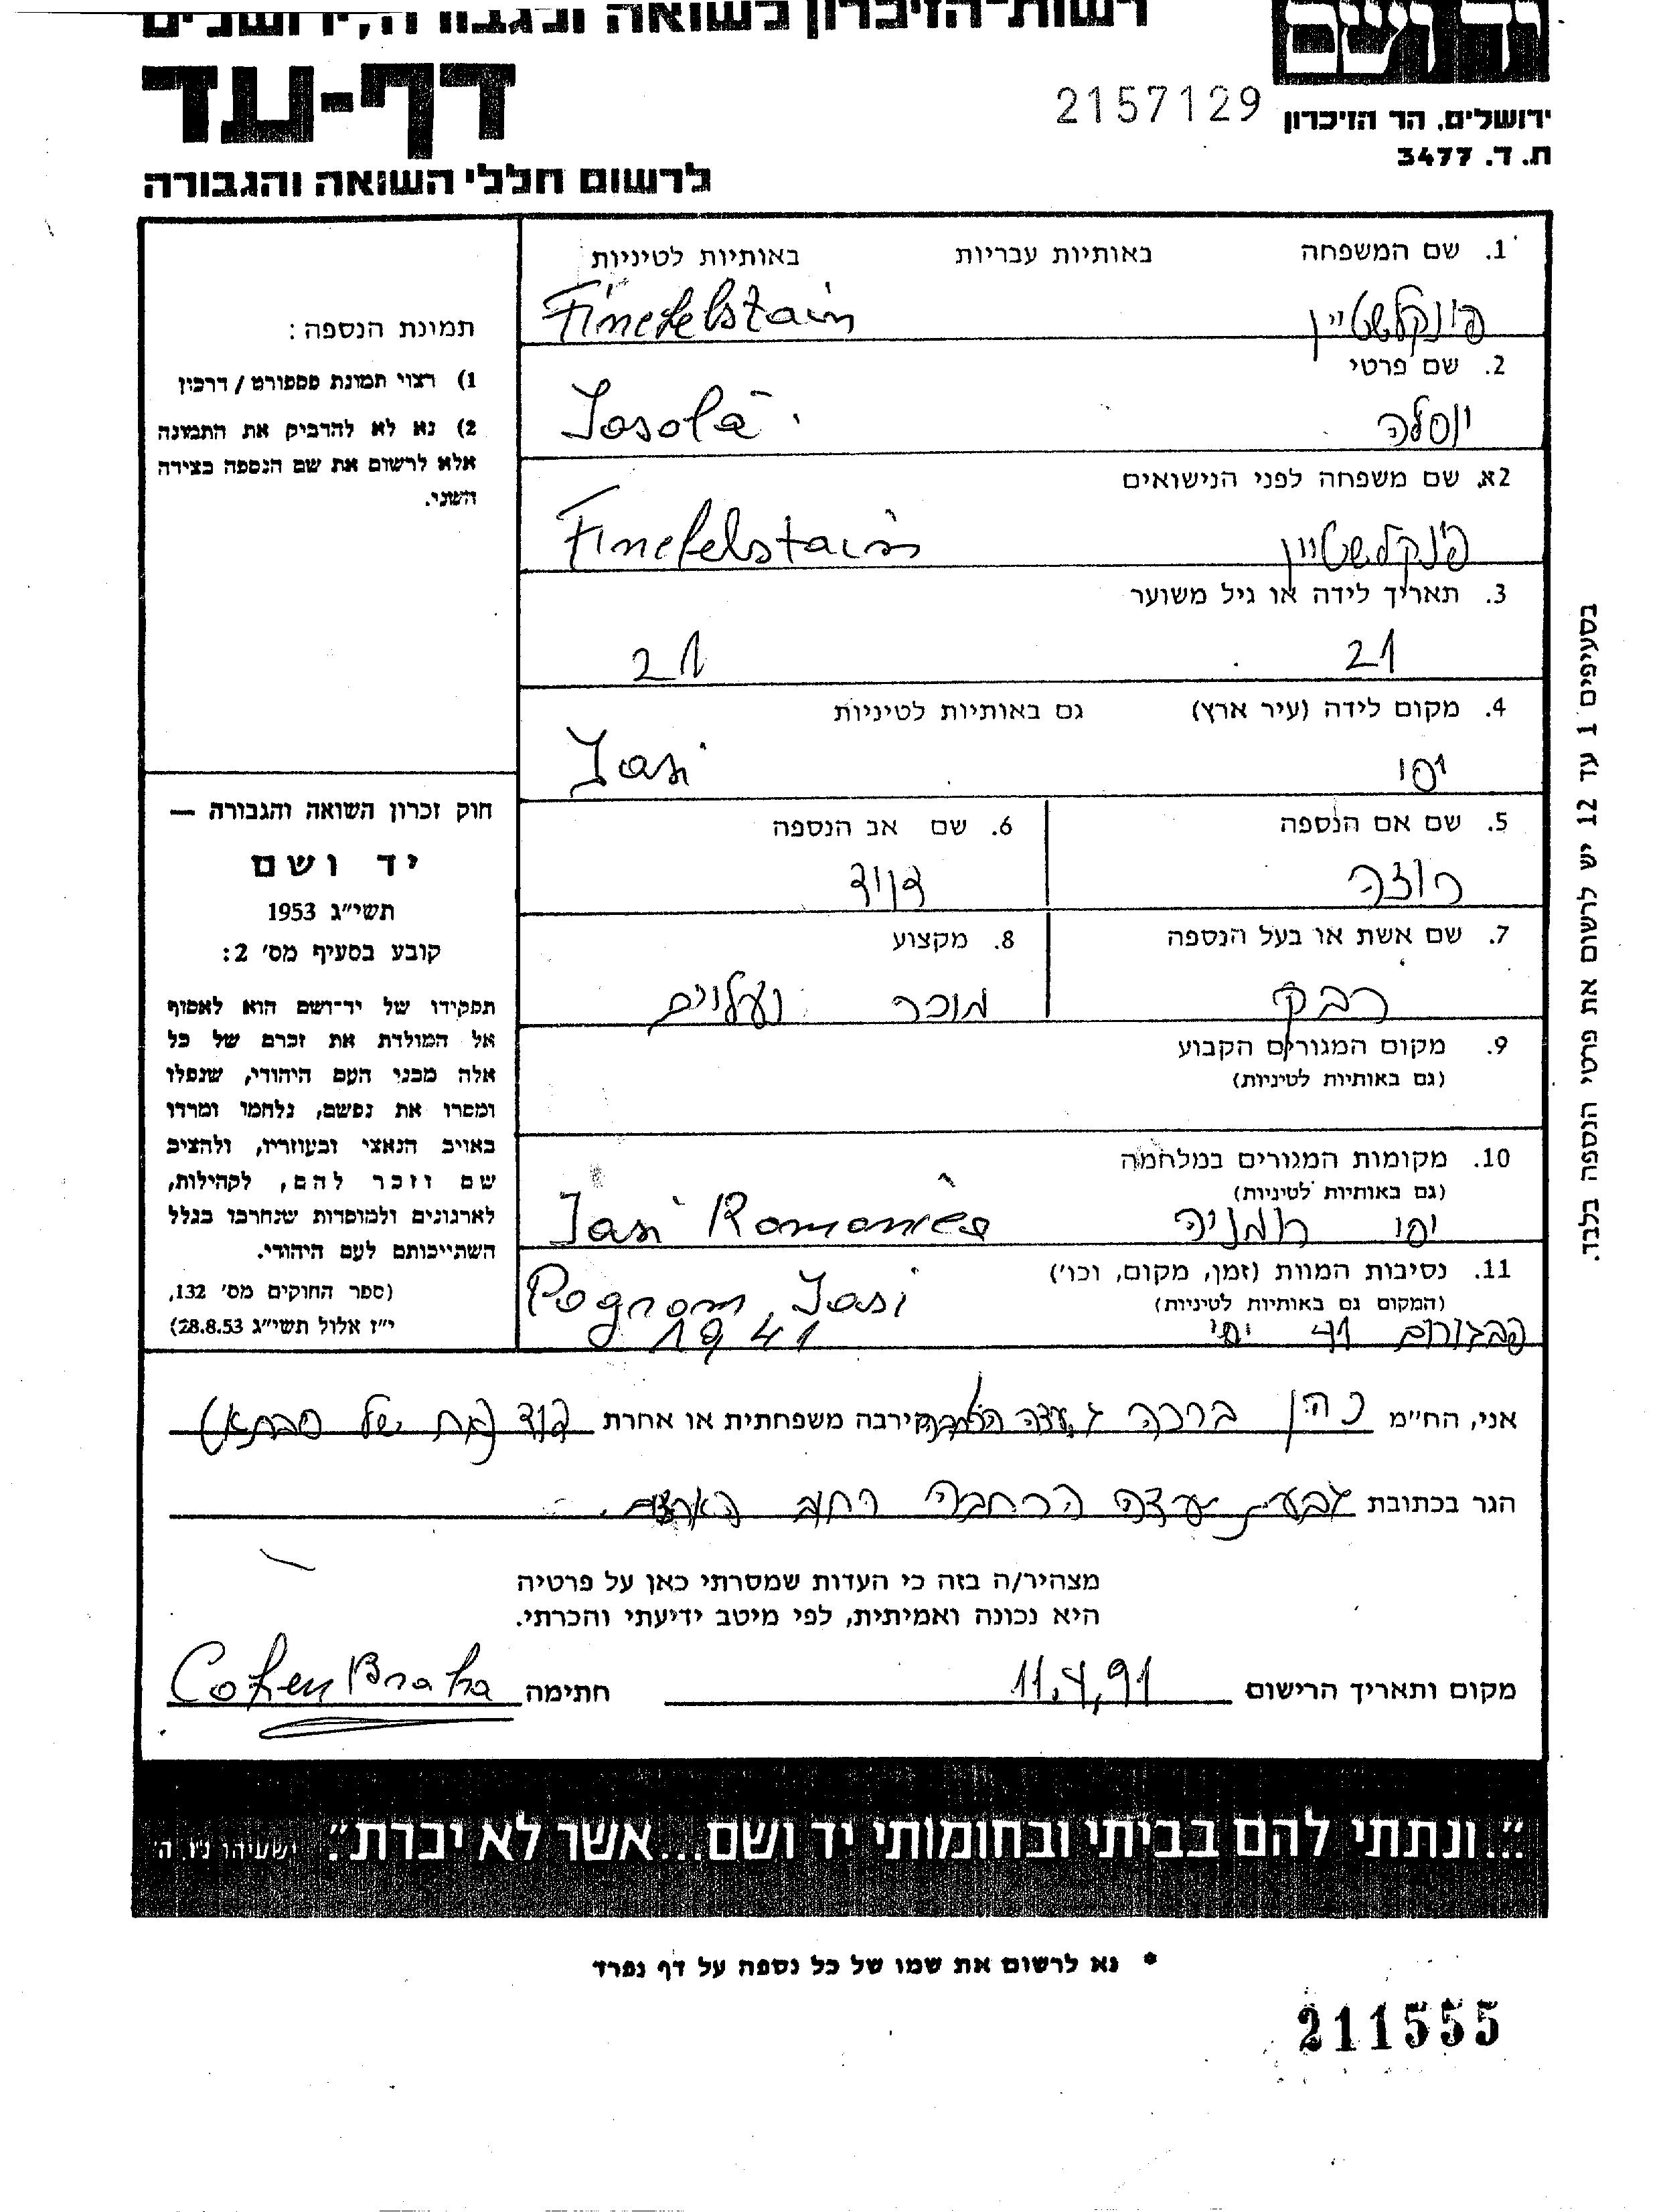 רשות-הזיכרון לשואה ולגבורה, ירושלים
יד ושם
דף-עד
2157129
ירושלים, הר הזיכרון
ת. ד. 3477
לרשום חללי השואה והגבורה
1. שם המשפחה באותיות עבריות באותיות לטיניות
פינקלשטיין Finchelstain
2. שם פרטי
יוסלה Iosola
2א. שם משפחה לפני הנישואים
פינקלשטיין Finchelstain
3. תאריך לידה או גיל משוער
21 21
4. מקום לידה (עיר ארץ) גם באותיות לטיניות
יסי Iasi
5. שם אם הנספה 6. שם אב הנספה
רוזה דוד
7. שם אשת או בעל הנספה 8. מקצוע
רבק מוכר נעליים
9. מקום המגורים הקבוע
(גם באותיות לטיניות)
10. מקומות המגורים במלחמה
(גם באותיות לטיניות)
יסי רומניה Iasi Romania
11. נסיבות המוות (זמן, מקום, וכו')
(המקום גם באותיות לטיניות)
פרגורום 41 יסי Pogrom, Iasi
1941
תמונת הנספה:
1) רצוי תמונת פספורט / דרכון
2) נא לא להדביק את התמונה
אלא לרשום את שם הנספה בצידה
השני.
חוק זכרון השואה והגבורה —
יד ושם
תשי"ג 1953
קובע בסעיף מס' 2:
תפקידו של יד-ושם הוא לאסוף
אל המולדת את זכרם של כל
אלה מבני העם היהודי, שנפלו
ומסרו את נפשם, נלחמו ומרדו
באויב הנאצי ובעוזריו, ולהציב
שם וזכר להם, לקהילות,
לארגונים ולמוסדות שנחרבו בגלל
השתייכותם לעם היהודי.
(ספר החוקים מס' 132,
י"ז אלול תשי"ג 28.8.53)
בסעיפים 1 עד 12 יש לרשום את פרטי הנספה בלבד.
אני, הח"מ כהן ברכה קירבה משפחתית או אחרת דוד (אח של סבתא)
הגר בכתובת גבעת עדה הרחבה רחוב הארזים
מצהיר/ה בזה כי העדות שמסרתי כאן על פרטיה
היא נכונה ואמיתית, לפי מיטב ידיעתי והכרתי.
מקום ותאריך הרישום 11.4.91 חתימה Cohen Braha
"...ונתתי להם בביתי ובחומותי יד ושם...אשר לא יכרת". ישעיהו נ"ו, ה'
* נא לרשום את שמו של כל נספה על דף נפרד
211555